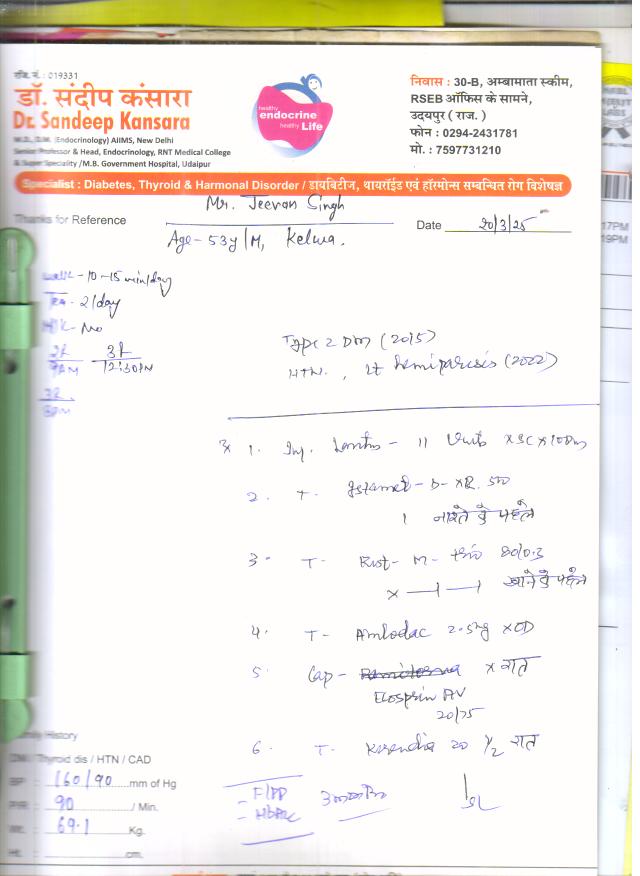 रजि. नं. : 019331
डॉ. संदीप कंसारा
Dr. Sandeep Kansara
M.D., D.M. (Endocrinology) AIIMS, New Delhi
Senior Professor & Head, Endocrinology, RNT Medical College
& Super Speciality /M.B. Government Hospital, Udaipur
healthy
endocrine
healthy Life
निवास : 30-B, अम्बामाता स्कीम,
RSEB ऑफिस के सामने,
उदयपुर ( राज. )
फोन : 0294-2431781
मो. : 7597731210
Specialist : Diabetes, Thyroid & Harmonal Disorder / डायबिटीज, थायरॉईड एवं हॉरमोन्स सम्बन्धित रोग विशेषज्ञ
Thanks for Reference
Mr. Jeevan Singh
Date 20/3/25
Age - 53y/M, Kelwa.
walk - 10-15 min/day
Tea - 2/day
Milk - No
2R 3R
9AM 12:30PM
3R
8PM
Type 2 DM (2015)
HTN, Lt hemiparesis (2022)
1. Inj. Lantus - 11 Units x SC x 10
2. T. Istamet - D - XR 500
1 नाश्ते के पहले
3. T - M - 80/0.3
x खाने के पहले
4. T - Amlodac 2.5mg x OD
5. Cap - x रात
Ecosprin AV
20/75
6. T. Kerendia 20 1/2 रात
Family History
DM / Thyroid dis / HTN / CAD
BP : 160/90 mm of Hg
P/R : 90 / Min.
Wt. : 69.1 Kg.
Ht. : cm.
- HbA1c
17PM
19PM